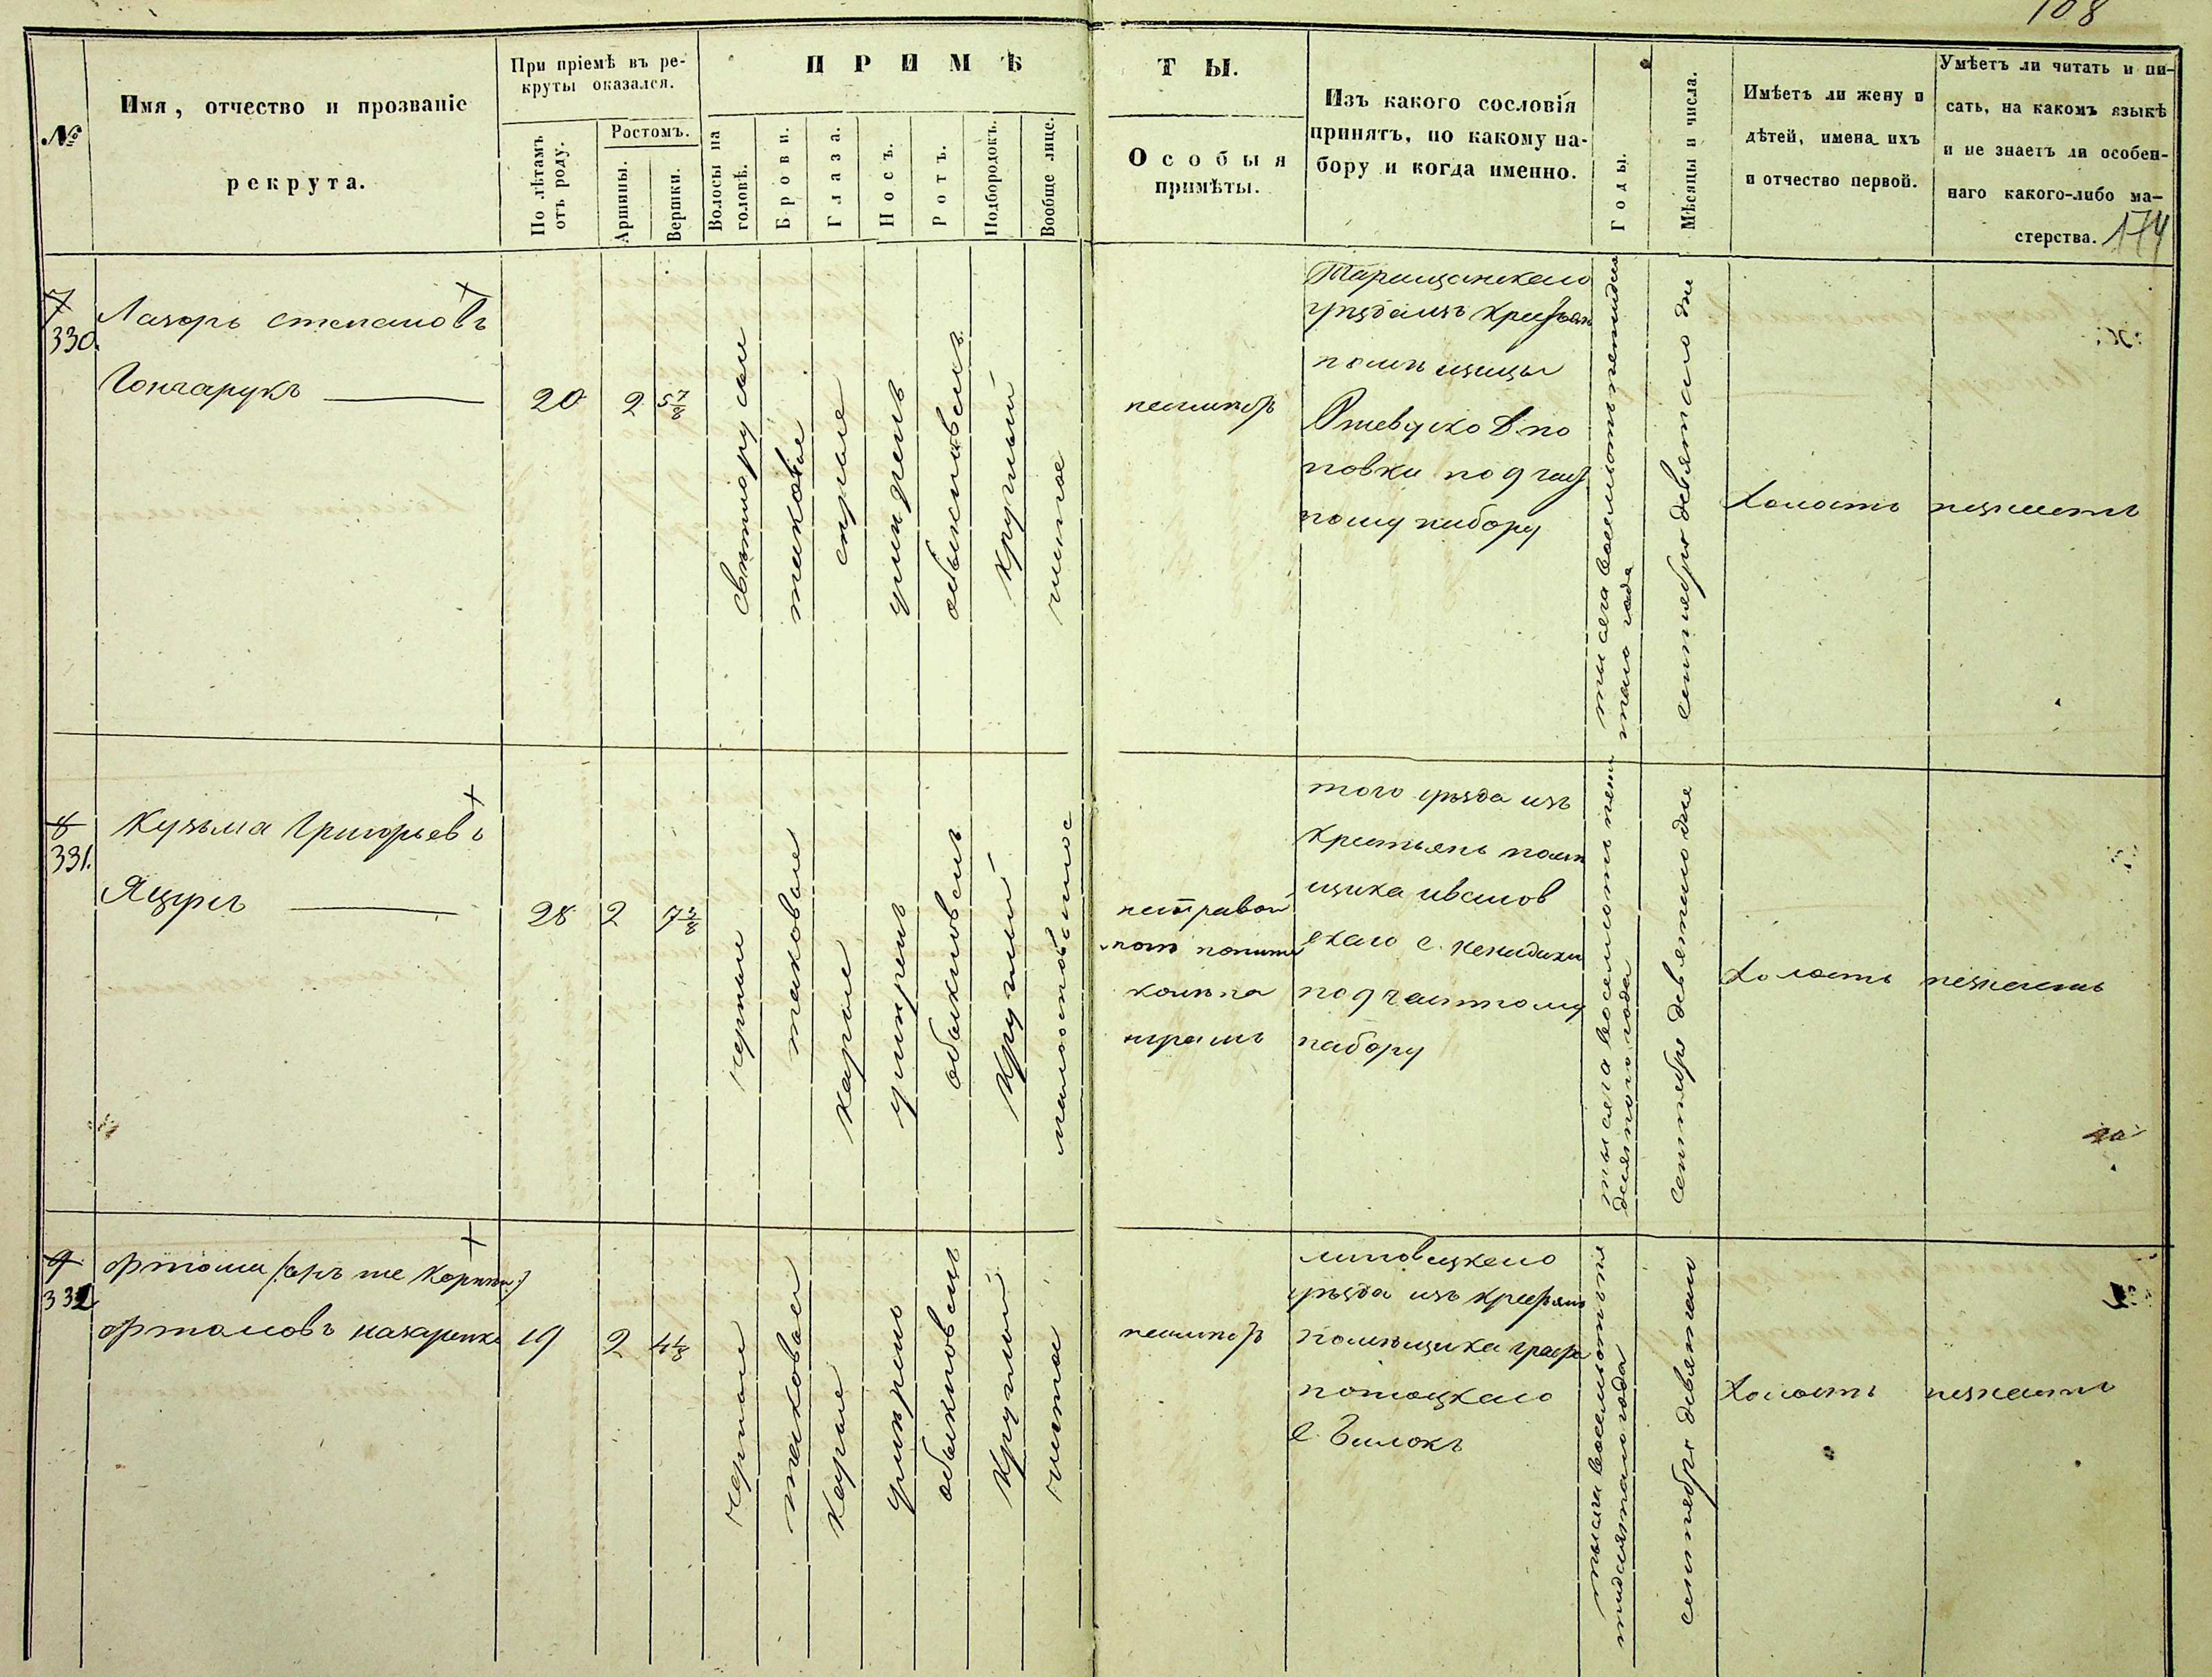 108
№
Имя, отчество и прозваніе
рекрута.
При пріемѣ въ ре-
круты оказался.
По лѣтамъ
отъ роду.
Ростомъ.
Аршины.
Вершки.
ПРИМѢ
Волосы на
головѣ.
Брови.
Глаза.
Носъ.
Ротъ.
Подбородокъ.
Вообще лице.
ТЫ.
Особыя
примѣты.
Изъ какого сословія
принятъ, по какому на-
бору и когда именно.
Годы.
Мѣсяцы и числа.
Имѣетъ ли жену и
дѣтей, имена ихъ
и отчество первой.
Умѣетъ ли читать и пи-
сать, на какомъ языкѣ
и не знаетъ ли особен-
наго какого-либо ма-
стерства.
174
7
330.
Лазорь степановъ
Гончарукъ
20
2
5 7/8
светлорусые
таковые
серые
умѣренъ
обыкновенъ
круглый
чистое
Таращанскаго
уѣзда изъ
помѣщицы
повки по 9 част
ному набору
тысяча восемьсотъ
таго года
сентебря девятаго дне
холостъ
незнаетъ
8
331.
Кузьма Григорьевъ
28
2
7 3/8
черные
таковые
карые
умѣренъ
обыкновенъ
круглый
на правой
шрамъ
того уѣзда изъ
крестьянъ помѣ
щика иванов
скаго с.
по 9 частному
набору
тысяча восемьсотъ пети
десятого года
сентебре девятаго дне
холостъ
незнаетъ
9
332
ортомовъ назаренко
19
2
4 1/8
черные
таковые
карые
умѣренъ
обыкновенъ
круглый
чистое
липовецкаго
уѣзда изъ
помѣщика графа
потоцкаго
с.
тысяча восемьсотъ пя
тидесятаго года
сентебре девятаго
холостъ
незнаетъ